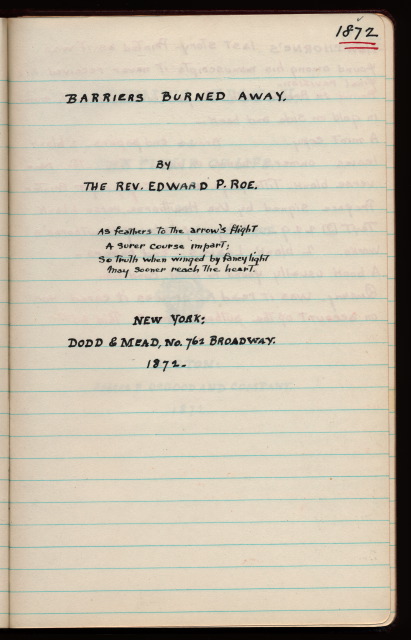 1872
BARRIERS BURNED AWAY.
BY
THE REV. EDWARD P. ROE.
As feathers to the arrow's flight
A surer course impart;
So truth when winged by fancy light
May sooner reach the heart.
NEW YORK:
DODD & MEAD, No. 762 BROADWAY.
1872.